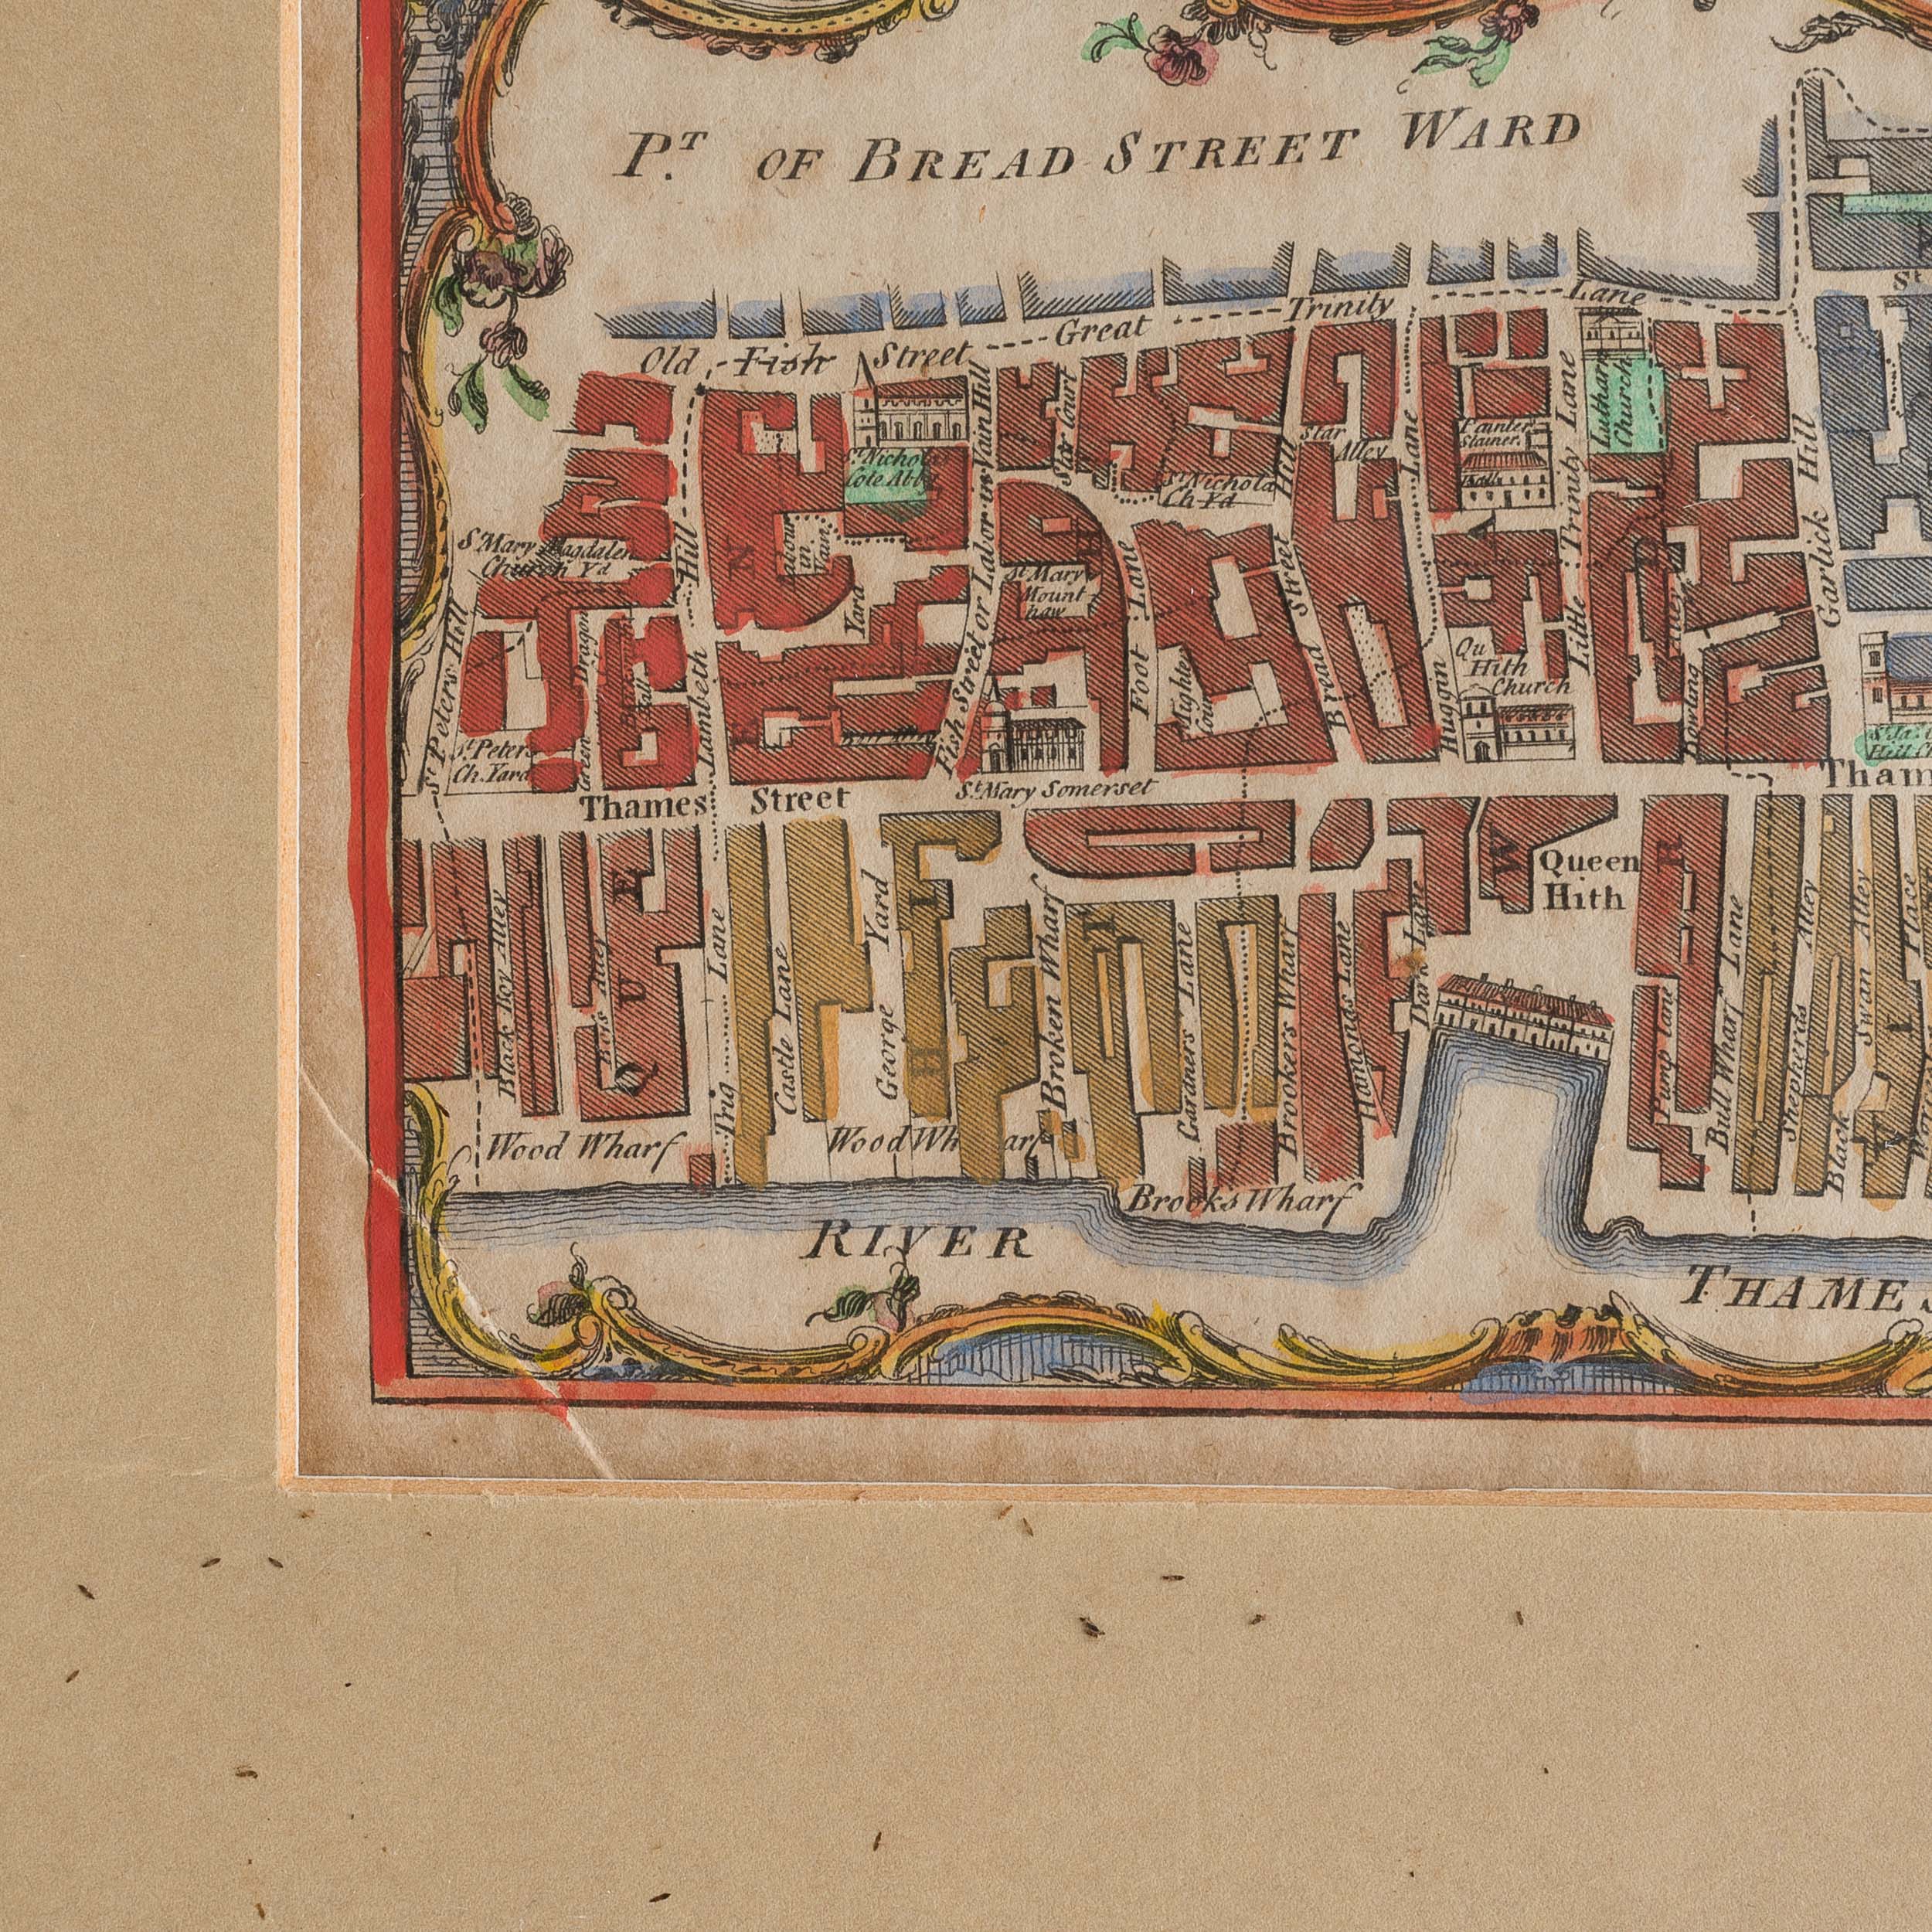 P.T OF BREAD STREET WARD
Old Fish Street
Great Trinity Lane
St
St Nichola
Cole Abby
Star Court
St Nichola
Ch Yd
Star
Alley
Painter
Stainer.
Hall
Luthern
Church
Little Trinity Lane
Garlick Hill
St Mary Magdalen
Church Yd
St Peters Hill
St Peters
Ch. Yard
Green Dragon
Lambeth Hill
N
Labour
in
Vain
Yard
Fish Street or Labor in Vain Hill
St Mary
Mount
haw
Foot Lane
Bread Street Hill
Huggin Lane
A
Qu
Hith
Church
Thames Street
St Mary Somerset
Tham
Queen
Hith
W
R
Black Boy Alley
Boss Alley
Q U E
Trig Lane
Castle Lane
George Yard
H I
Broken Wharf
T
Gardners Lane
Brookers Wharf
Hamonds Lane
Dark Lane
Pump Lane
Bull Wharf Lane
Shepherds Alley
Black Swan Alley
Place
Wood Wharf
Wood Wharf
Brooks Wharf
RIVER
THAMES